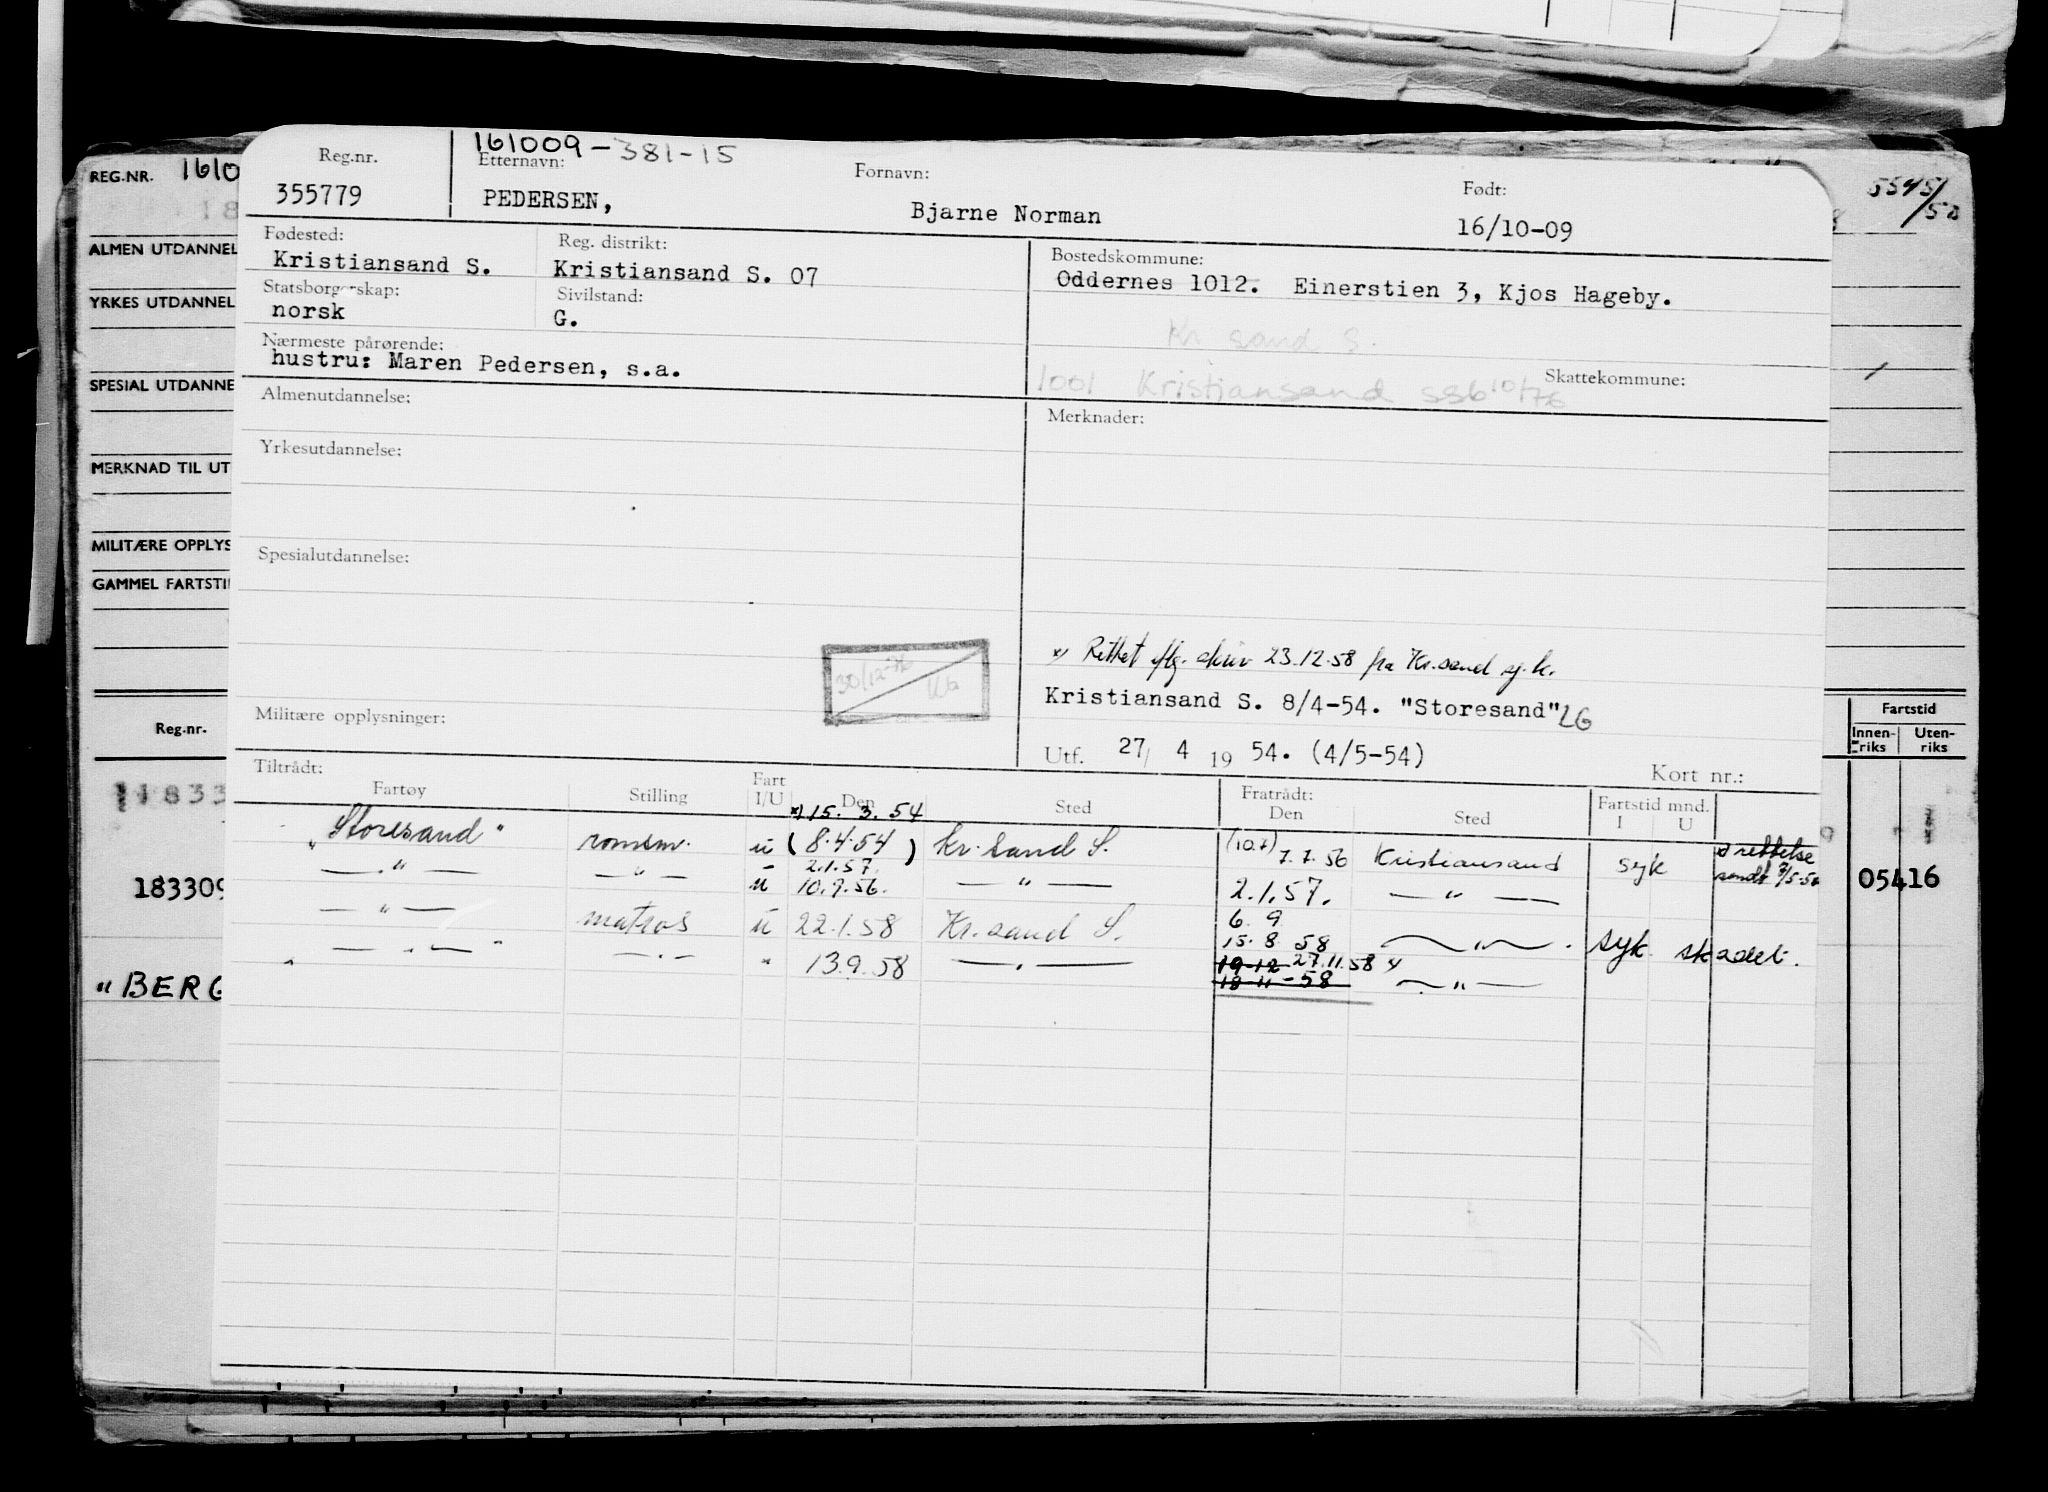 161009-381-15
Reg.nr. Etternavn: Fornavn: Født:
355779 PEDERSEN, Bjarne Norman 16/10-09
Fødested: Reg. distrikt: Bostedskommune:
Kristiansand S. Kristiansand S. 07 Oddernes 1012. Einerstien 3, Kjos Hageby.
Statsborgerskap: Sivilstand:
norsk G.
Kr sand S.
Nærmeste pårørende:
hustru: Maren Pedersen, s.a.
1001 Kristiansand ssb 10/76 Skattekommune:
Almenutdannelse: Merknader:
Yrkesutdannelse:
Spesialutdannelse:
x) Rettet iflg. skriv 23.12.58 fra Kr.sand sj.k.
30/12-76
Kristiansand S. 8/4-54. "Storesand" LG
Militære opplysninger:
Utf. 27/ 4 19 54. (4/5-54)
Kort nr.:
Tiltrådt: Fratrådt: Fartstid mnd.
Fartøy Stilling Fart I/U Den Sted Den Sted I U
x) 15. 3. 54
"Storesand" romsm. u (8.4.54) Kr. sand S. (10.7) 7.7.56 Kristiansand syk x rettelse
2.1.57. sendt
—"— —"— u 10.9.56. —"— 2.1.57. —"—
—"— matros u 22.1.58 Kr. sand S. 6. 9
15. 8 58 —"—. syk skadet.
—"— —"— " 13.9.58 —"— 19-12 27.11.58 x
18-11-58 —"—
REG.NR. 1610
5545/50
ALMEN UTDANNEL
YRKES UTDANNEL
SPESIAL UTDANNE
MERKNAD TIL UT
MILITÆRE OPPLYS
GAMMEL FARTSTI
Reg.nr.
Fartstid
Innen-riks Uten-riks
1833
183309
05416
"BERG